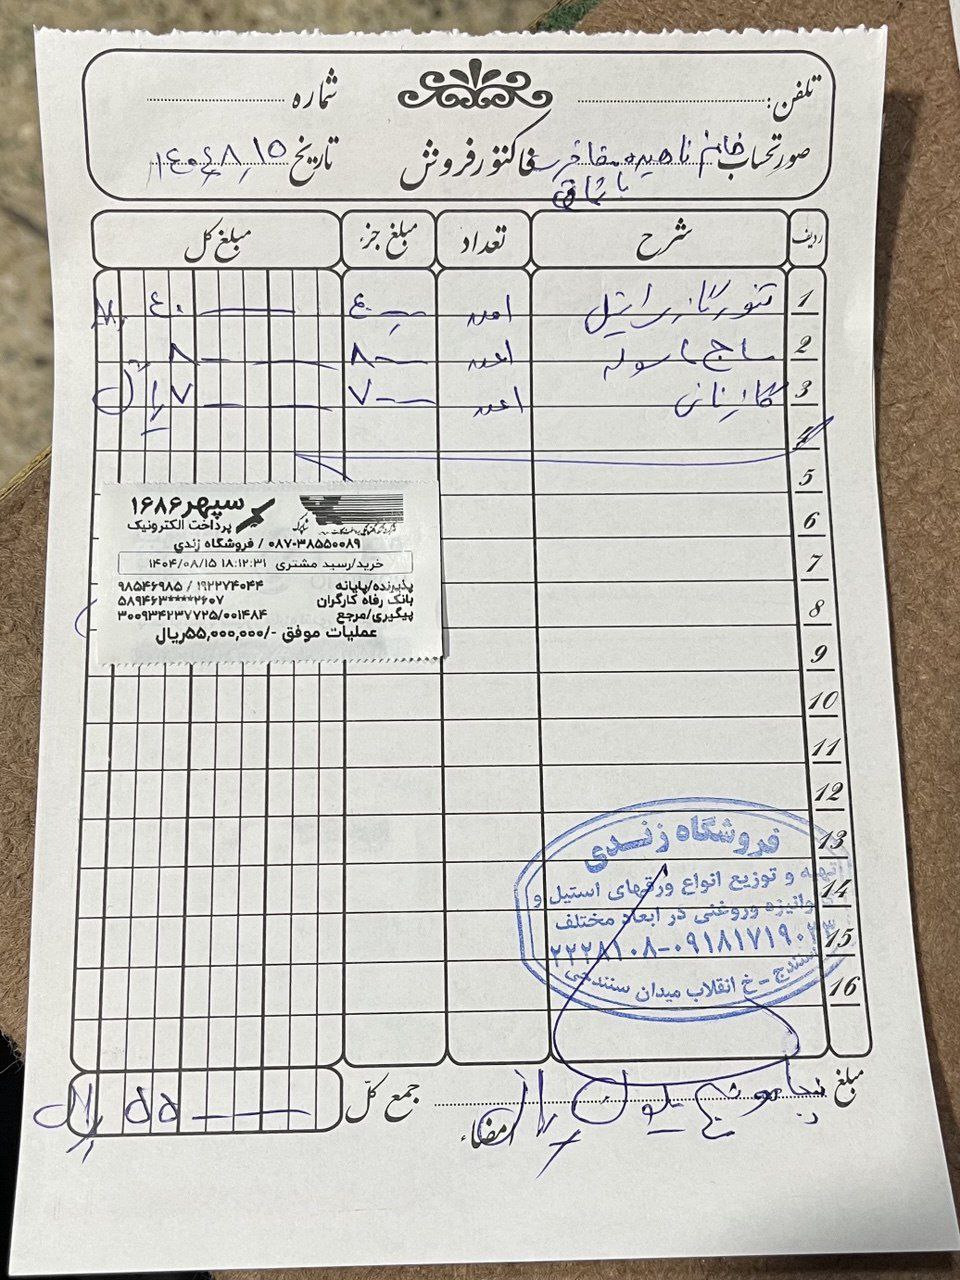 تلفن: شماره
صورتحساب خانم ناهیده فاکتور فروش تاریخ ۱۴۰۴/۸/۱۵
ردیف شرح تعداد مبلغ جزء مبلغ کل
1 تنور گازی استیل ۱عدد ۴۰ ۴۰ ریال
2 ساج ۱عدد ۸ ۸
3 ۱عدد ۷ ۷ ریال
4
5
6
7
8
9
10
11
12
13
14
15
16
سپهر۱۶۸۶
پرداخت الکترونیک
۰۸۷-۳۸۵۵۰۰۸۹ / فروشگاه زندی
خرید/رسید مشتری ۱۸:۱۲:۳۱ ۱۴۰۴/۰۸/۱۵
پذیرنده/پایانه ۱۹۲۲۷۴۰۴۴ / ۹۸۵۴۶۹۸۵
بانک رفاه کارگران ۵۸۹۴۶۳****۲۶۰۷
پیگیری/مرجع ۳۰۰۹۳۴۲۳۷۷۲۵/۰۰۱۴۸۴
عملیات موفق -/۵۵,۰۰۰,۰۰۰ریال
فروشگاه زندی
تهیه و توزیع انواع ورقهای استیل و
گالوانیزه وروغنی در ابعاد مختلف
۲۲۲۸۱۰۸-۰۹۱۸۱۷۱۹۰۲۳
سنندج - خ انقلاب میدان سنندجی
مبلغ پنجاه و پنج میلیون ریال جمع کل ۵۵ ریال
امضاء